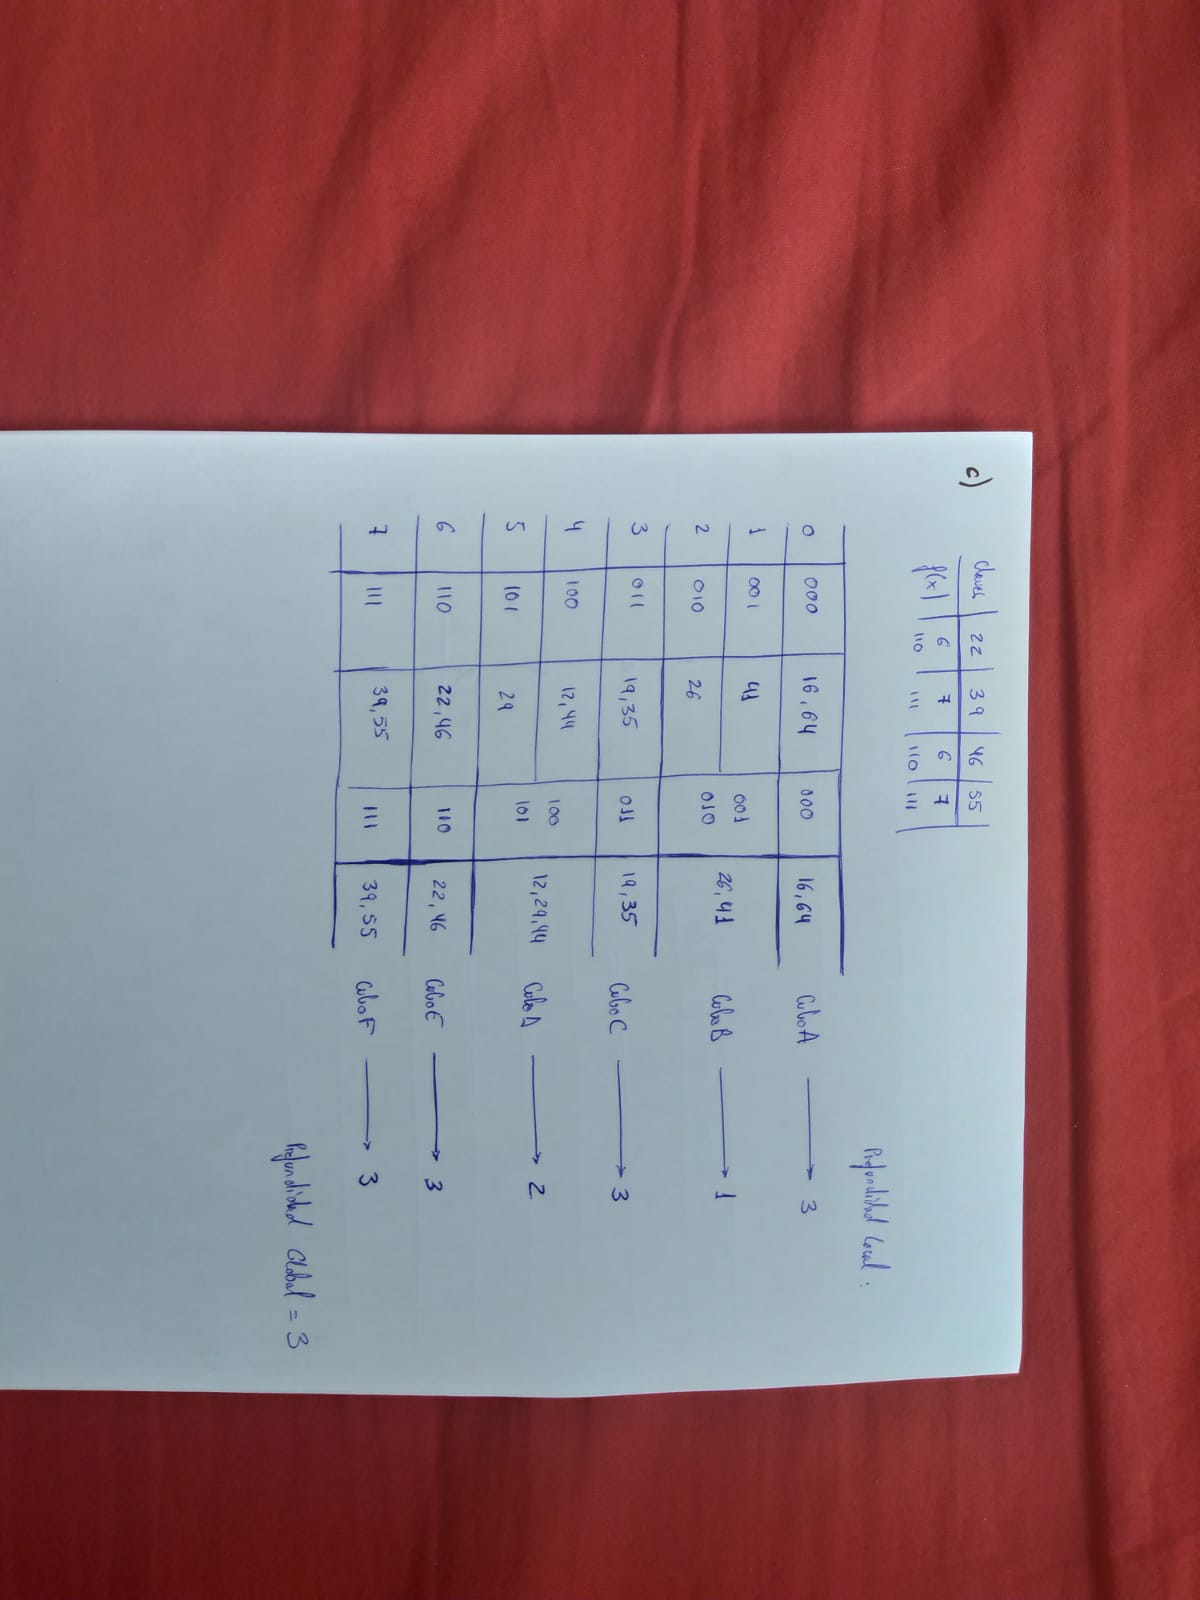 c)
claves | 22 | 39 | 46 | 55
f(x) | 6 | 7 | 6 | 7
110 | 111 | 110 | 111
Profundidad Local:
0 000 16,64 000 16,64 Cubo A → 3
1 001 41 001
26,41 Cubo B → 1
2 010 26 010
3 011 19,35 011 19,35 Cubo C → 3
4 100 12,44 100
12,29,44 Cubo D → 2
5 101 29 101
6 110 22,46 110 22,46 Cubo E → 3
7 111 39,55 111 39,55 Cubo F → 3
Profundidad Global = 3